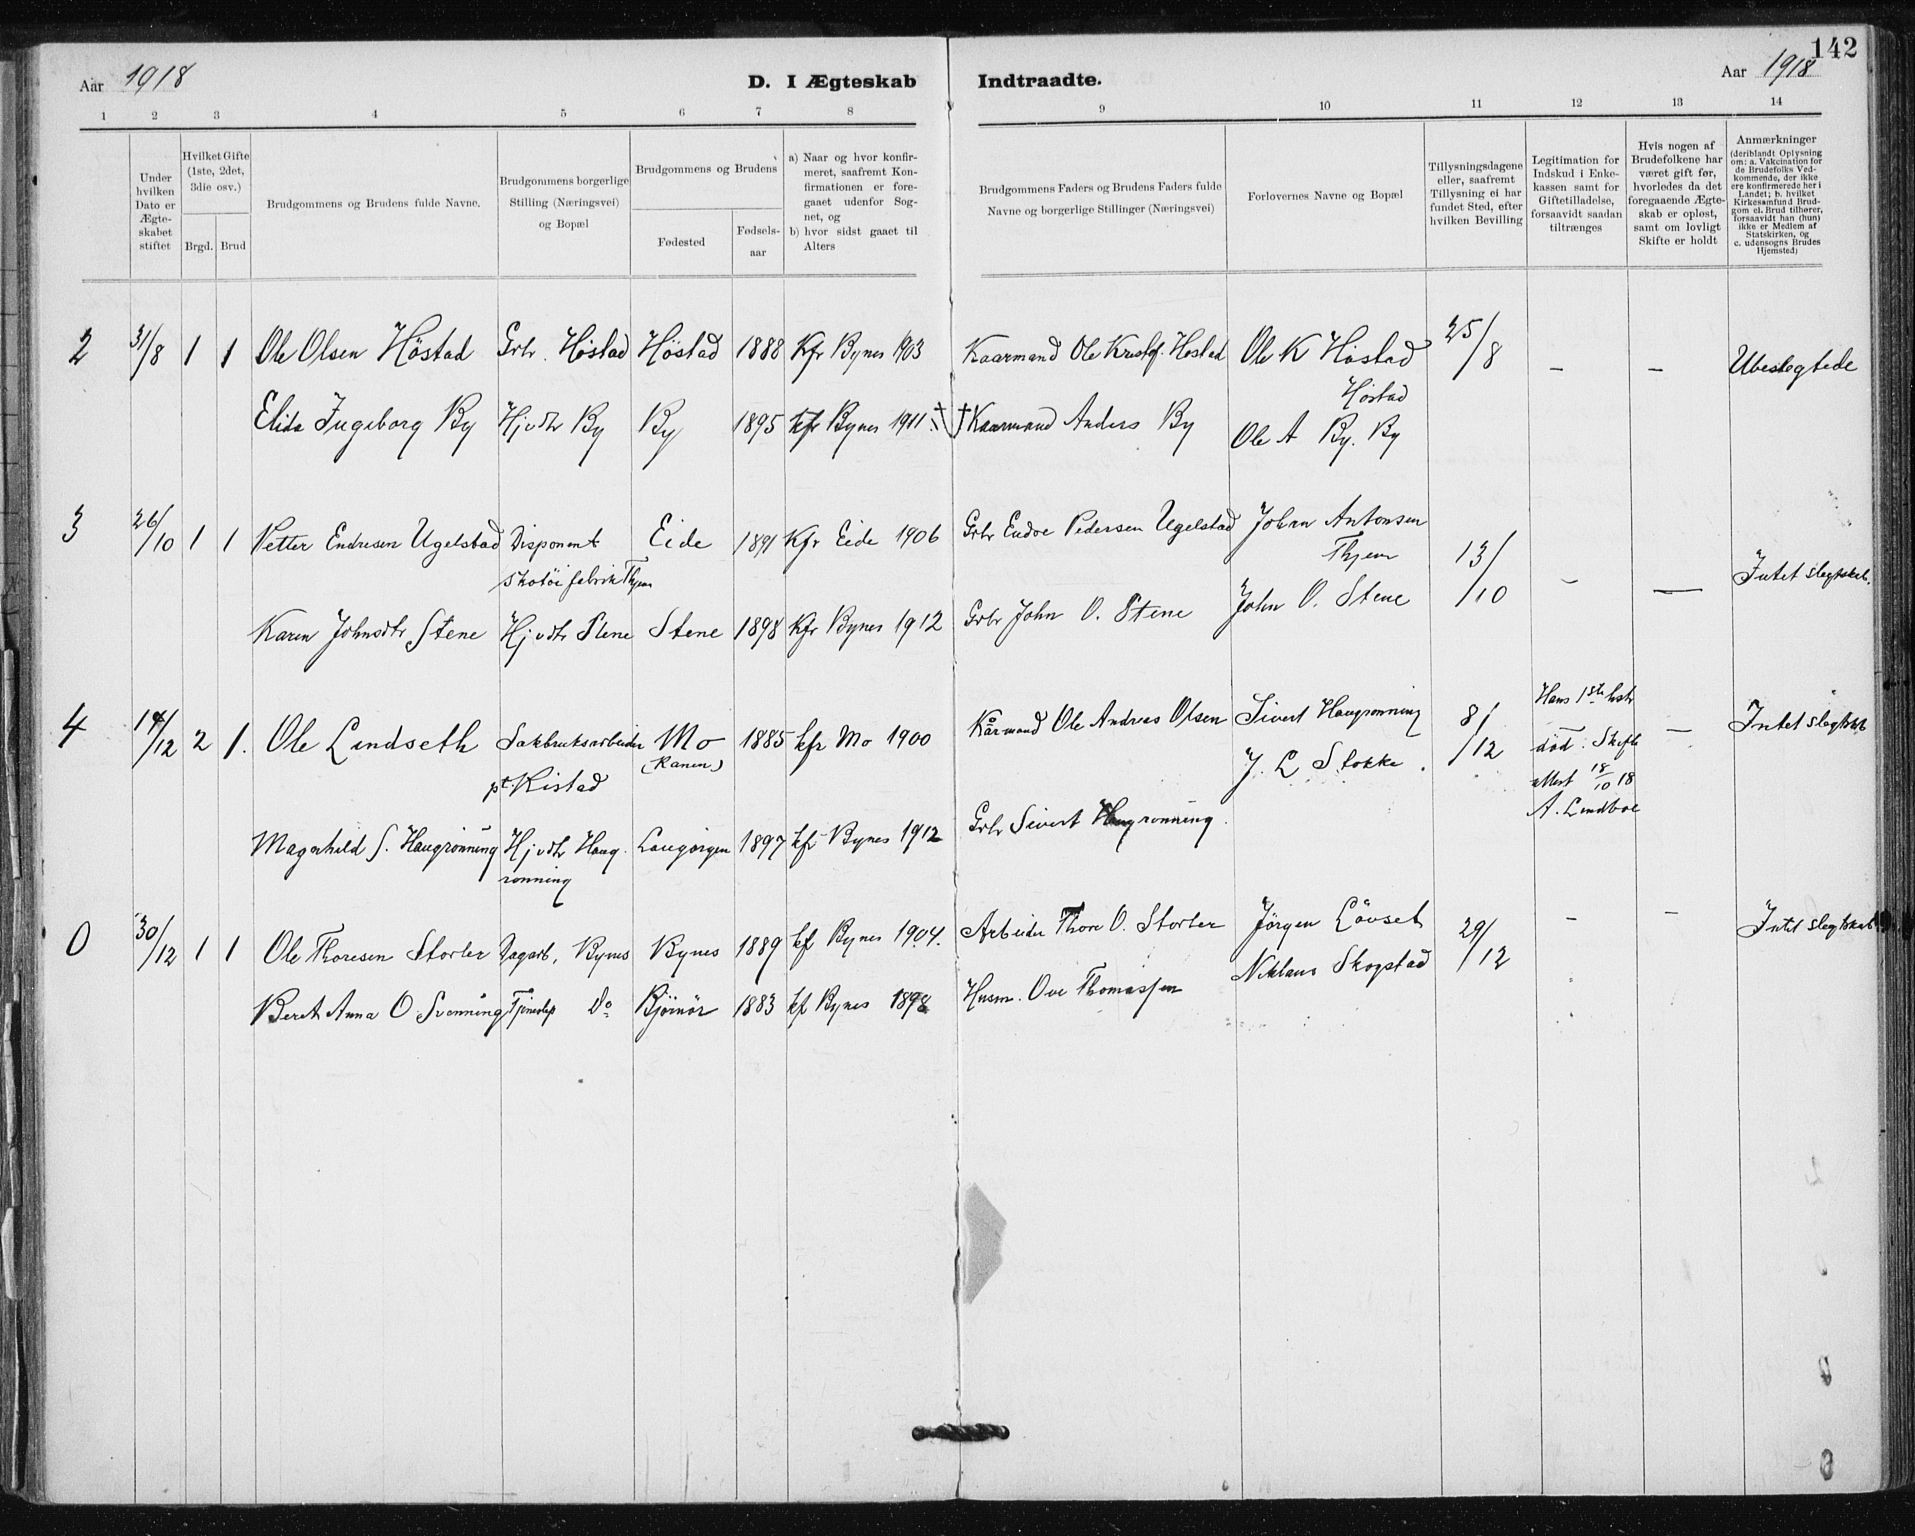 142
Aar 1918
D. I Ægteskab Indtraadte.
Aar 1918
1 2 3 4 5 6 7 8 9 10 11 12 13 14
Under hvilken Dato er Ægte-skabet stiftet
Hvilket Gifte (1ste, 2det, 3die osv.)
Brgd. Brud
Brudgommens og Brudens fulde Navne.
Brudgommens borgerlige Stilling (Næringsvei) og Bopæl
Brudgommens og Brudens
Fødested
Fødsels-aar
a) Naar og hvor konfir-meret, saafremt Kon-firmationen er fore-gaaet udenfor Sog-net, og
b) hvor sidst gaaet til Alters
Brudgommens Faders og Brudens Faders fulde Navne og borgerlige Stillinger (Næringsvei)
Forlovernes Navne og Bopæl
Tillysningsdagene eller, saafremt Tillysning ei har fundet Sted, efter hvilken Bevilling
Legitimation for Indskud i Enke-kassen samt for Giftetilladelse, forsaavidt saadan tiltrænges
Hvis nogen af Brudefolkene har været gift før, hvorledes da det foregaaende Ægte-skab er opløst, samt om lovligt Skifte er holdt
Anmærkninger (deriblandt Oplysning om: a. Vakcination for de Brudefolks Ved-kommende, der ikke ere konfirmerede her i Landet; b. hvilket Kirkesamfund Brud-gom el. Brud tilhører, forsaavidt han (hun) ikke er Medlem af Statskirken, og c. udensogns Brudes Hjemsted)
2 31/8 1 1 Ole Olsen Höstad Grbr. Höstad Höstad 1888 Kfr Bynes 1903 Kaarmand Ole Kristof. Höstad Ole K Höstad 25/8 - - Ubeslegtede
Höstad
Elida Ingeborg By Hjvdtr By By 1895 kfr Bynes 1911 † Kaarmand Anders By Ole A By. By
3 26/10 1 1 Petter Endresen Ugelstad Disponent Eide 1891 Kfr Eide 1906 Grbr Endre Pedersen Ugelstad Johan Antonsen 13/10 - - Intet slegtskab.
skotöifabrik Thjem Thjem
Karen Johnsdtr Stene Hjvdtr Stene Stene 1898 Kfr Bynes 1912 Grbr John O. Stene John O. Stene
4 14/12 2 1. Ole Lindseth Sakbruksarbeider Mo 1885 kfr Mo 1900 Kårmand Ole Andreas Olsen Sivert Haugrönning 8/12 Hans 1ste hstr - Intet slegtskab
pt. Ristad (Ranen) J. L Stokke död. Skifte
attest 18/10 18
A. Lindboe
Magnhild S. Haugrönning Hjvdtr Haug- 1897 kfr Bynes 1912 Grbr Sivert Haugrönning.
rönning
0 30/12 1 1 Ole Thoresen Storler Dagarb. Bynes Bynes 1889 kf Bynes 1904. Arbeider Thore O. Storler Jörgen Lövset 29/12 - - Intet slegtskab
Beret Anna O. Svenning Tjenestep Do Bjørnör 1883 kf Bynes 1898 Husm. Ove Thomassen Niklaus Skogstad